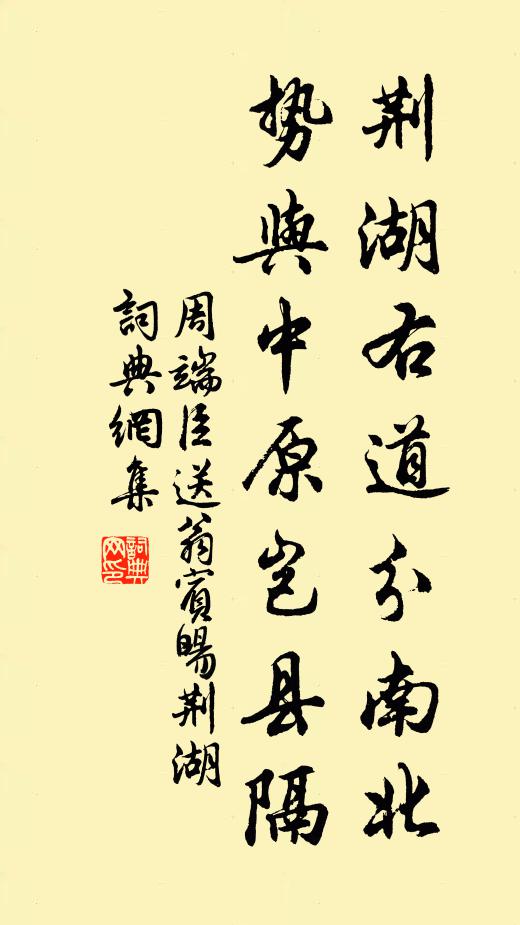 荆湖右道分南北
势與中原岂县隔
周端臣送翁賓暘荆湖
詞典網集
詞典网印